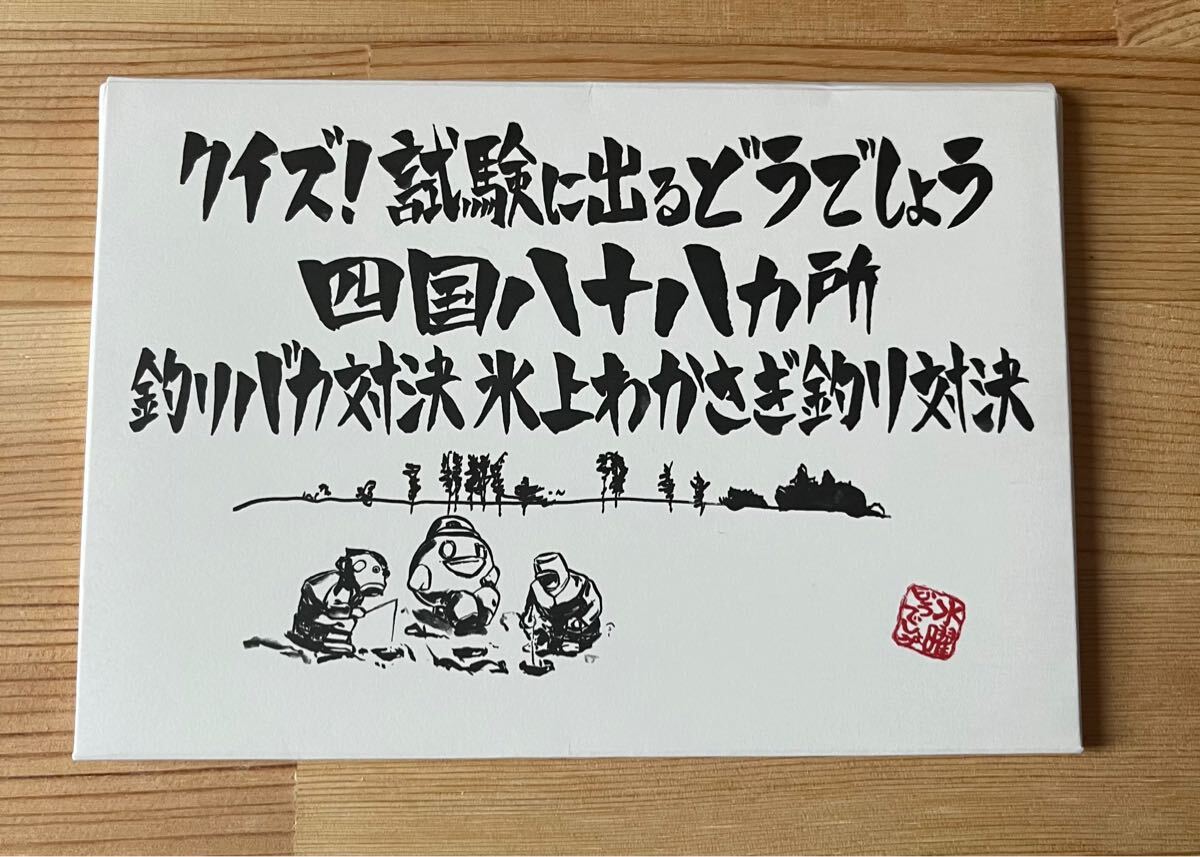 クイズ!試験に出るどうでしょう
四国八十八カ所
釣りバカ対決 氷上わかさぎ釣り対決
水曜
どうでしょう